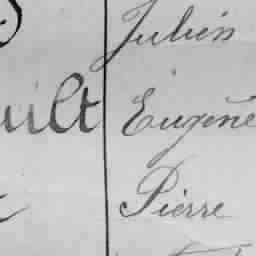 Julien
uilt Eugène
Pierre